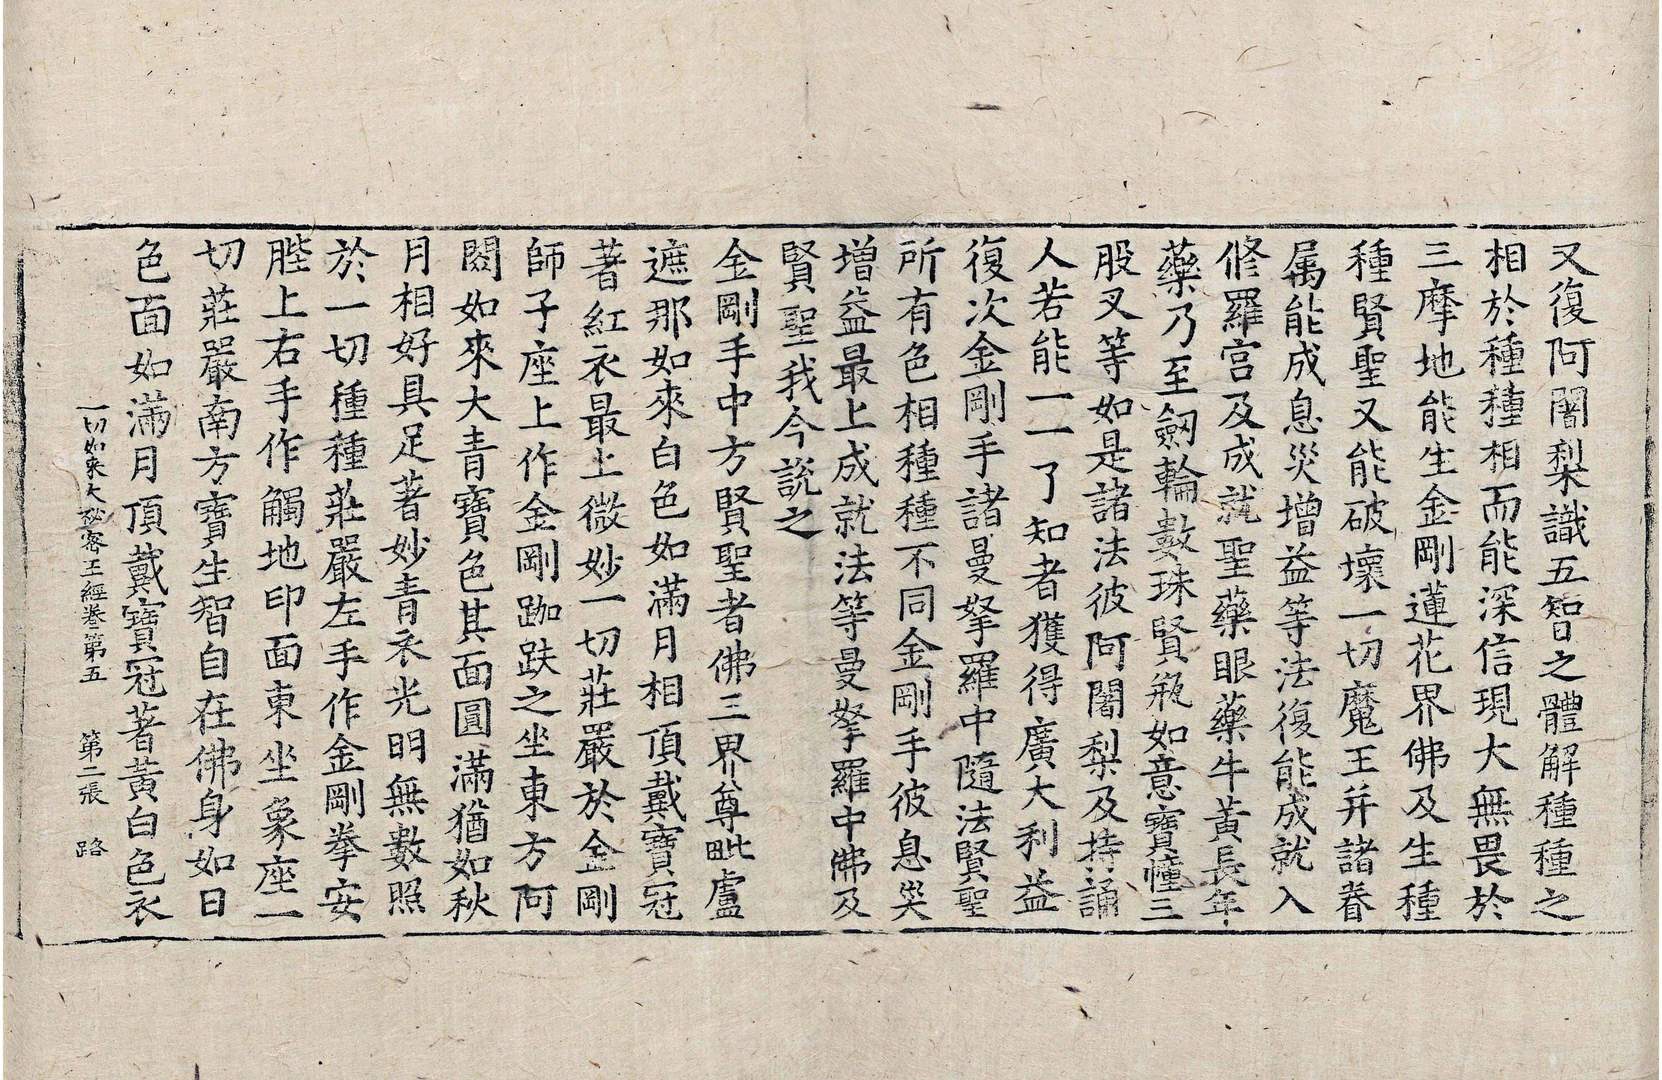 又復阿闍梨識五智之體解種種之
相於種種相而能深信現大無畏於
三摩地能生金剛蓮花界佛及生種
種賢聖又能破壞一切魔王并諸眷
属能成息災增益等法復能成就入
修羅宫及成就聖藥眼藥牛黃長年
藥乃至劔輪數珠賢瓶如意寶幢三
股叉等如是諸法彼阿闍梨及持誦
人若能一一了知者獲得廣大利益
復次金剛手諸曼拏羅中隨法賢聖
所有色相種種不同金剛手彼息災
增益最上成就法等曼拏羅中佛及
賢聖我今説之
金剛手中方賢聖者佛三界尊毗盧
遮那如來白色如滿月相頂戴寶冠
著紅衣最上微妙一切莊嚴於金剛
師子座上作金剛跏趺之坐東方阿
閦如來大青寶色其面圓滿猶如秋
月相好具足著妙青衣光明無數照
於一切種種莊嚴左手作金剛拳安
䏶上右手作觸地印面東坐象座一
切莊嚴南方寶生智自在佛身如日
色面如滿月頂戴寶冠著黃白色衣
一切如來大秘密王經卷第五　第二張　路